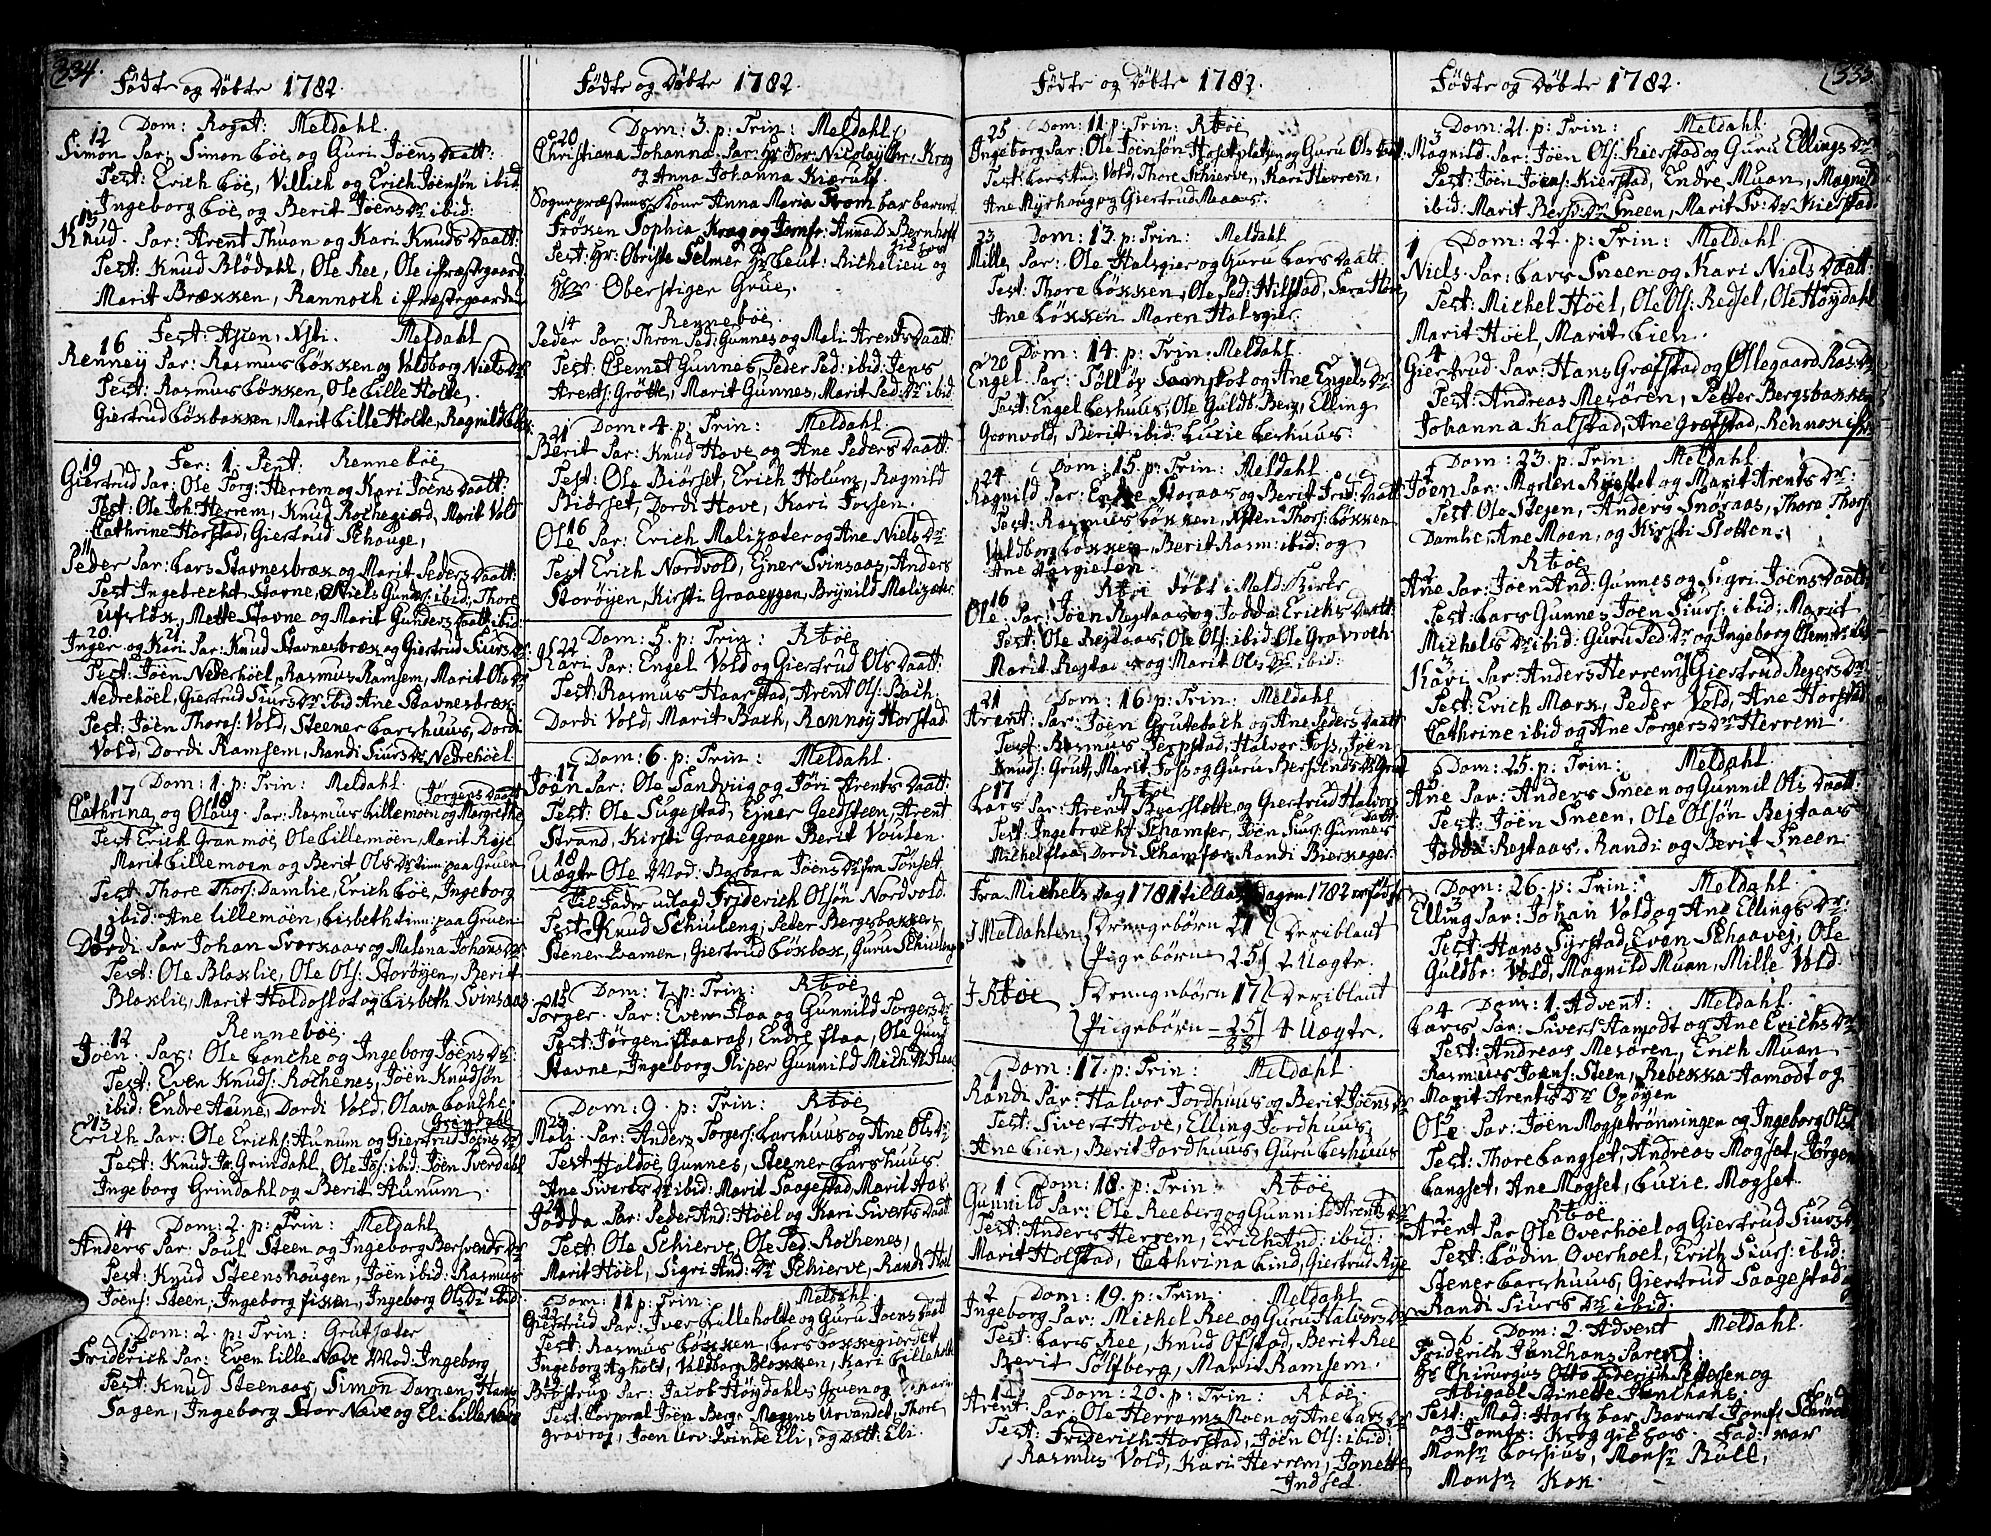 334.
Födte og Döbte 1782.
Dom: Rogat: Meldahl.
12
Simon Par: Simon Löe og Guri Jöens Daatt:
Test: Erich Löe, Villich og Erich Jöensön ibid
Ingeborg Löe, og Berit Jöens Dr ibid:
15
Knud. Par: Arent Thuan og Kari Knuds Daatt:
Test: Knud Blödahl, Ole Ree, Ole i Præstegaard
Marit Brækken, Rannoch i Præstegaarden
Fest: Asjen, Xsti. Meldahl
16
Renney Par: Rasmus Löxxen og Valborg Niels Dr
Test: Rasmus Löxxen, Ole Lille Holte,
Giertrud Löxbaxxen, Marit Lille Holte, Ragnild
Fer: 1. Pent: Renneböe
19
Giertrud Par: Ole Torg: Herrem og Kari Jöens Daatt:
Test: Ole Joh: Herrem, Knud Rochegiærd, Marit Vold
Cathrine Horstad, Giertrud Schouge,
11
Peder Par: Lars Stavnesbræx og Marit Peders Daatt:
Test Ingebrecht Stavne, Niels Gunders: ibid: Thore
Ufsløx, Mette Stavne og Marit Gunders Daatt ibid:
20. 21
Inger og Kari Par: Knud Stavnesbræx og Giertrud Siurs Dr
Test: Jöen Nedrehöel, Rasmus Ramsem, Marit Ols Dr
Nedrehöel, Giertrud Siurs Dr ibid Ane Stavnesbræx
Test: Jöen Thors: Vold, Steener Larshuus, Dordi
Vold, Dordi Ramsem, Randi Siurs Dr Nedrehöel
Dom: 1. p: Trin: Meldahl
17 18 Jörgens Daatt
Cathrina og Oloug. Par: Rasmus Lillemoen og Margrethe
Test Erich Granmoe, Ole Lillemöen, Marit Raje
Marit Lillemoen og Berit Ols Dr tien: paa Gruen
Test: Thore Thors: Damlie, Erich Löe, Ingeborg
ibid: Ane Lillemöen, Lisbeth tien: paa Gruen
19
Dordi Par Johan Svorkaas og Malena Johans Dr:
Test: Ole Bloxlie, Ole Ols: Storöyen, Berit
Bloxlie, Marit Haldoslot og Lisbeth Svinsaas
Renneböe.
12
Jöen. Par: Ole Lonche og Ingeborg Jöens Dr:
Test: Even Knuds: Rochenes, Jöen Knudsön
ibid: Endre Aune, Dordi Vold, Olava Lonche.
13
Erich Par: Ole Erichs: Aunum og Giertrud Jöens Dr
Test: Knud Jo: Grindahl, Ole Jo: ibid: Jöen Sverdahl
Ingeborg Grindahl og Berit Aunum.
14 Dom: 2. p: Trin: Meldahl
Anders Par: Poul Steen og Ingeborg Bersvends Dr
Test: Knud Steenshougen, Jöen ibid: Rasmus
Jöens: Steen, Ingeborg fixen, Ingeborg Ols Dr ibid:
Dom: 2. p: Trin: Grutsæter
Friderich Par: Even Lille Næve Mod: Ingeborg,
Test: Knud Steenaas, Simon Damen, Hans
Sagen, Ingeborg Stor Næve og Eli Lille Næve
Födte og Döbte 1782.
20 Dom: 3. p: Trin: Meldahl
Christiana Johanna. Par: Hr Jör: Nicolay Chr: Krog
og Anna Johanna Kierulf.
Sognepræstens Kone Anna Maria From bar barnet
Fröken Sophia Krag og Jomfr: Anna D: Bernhoft
Test: Hr: Obriste Selmer Hr Leut: Richelieu og
Hr Oberstiger Grue.
14 Renneböe.
Peder Par: Thron Ped: Gunnes og Mali Arents Daatt:
Test: Clemet Gunnes, Peder Ped: ibid: Jens
Arents: Grötte, Marit Gunnes, Marit Ped: Dr ibid
21 Dom: 4. p: Trin: Meldahl.
Berit Par: Knud Hove og Ane Peders Daatt:
Test: Ole Biörset, Erich Holum, Ragnild
Biörset, Dordi Hove, Kari Fossen.
16
Ole Par: Erich Malizæter og Ane Niels Dr:
Test Erich Nordvold, Ejner Svinsaas, Anders
Storöyen, Kirsti Graaeggen, Brynild Malizæter
22 Dom: 5. p: Trin: Rböe
Kari Par: Engel Vold og Giertrud Ols Daatt:
Test: Rasmus Haarstad, Arent Ols: Bach.
Dordi Vold, Marit Bach, Rannöy Horstad.
Dom: 6. p: Trin: Meldahl.
17
Jöen Par: Ole Sandviig og Jöri Arents Daatt:
Test: Ole Sugestad, Ejner Gedsteen, Arent
Strand, Kirsti Graaeggen Berit Vouten.
18
Uægte Ole Mod: Barbara Jöens Dr fra Tönset
Til Fader udlagd Friderich Olsön Nordvold.
Test: Knud Schiuleng, Peder Bergsbaxxen
Stener Damen, Giertrud Löxbax, Guru Schiuleng
Dom: 7. p: Trin: Rböe
15
Torger. Par: Even Flaa og Gunnild Torgers Dr
Test: Jörgen flaaraf, Endre flaa, Ole Jung
Stavne, Ingeborg Sliper Gunnild Mich: Dr Flaa
Dom: 9. p: Trin: Rböe
23
Mali. Par: Anders Torgers: Larshuus og Ane Ols Dr
Test Haldoe Gunnes, Steener Larshuus
Ane Siverts Dr ibid: Marit Saagestad, Marit Haf.
24
Jodda Par: Peder And: Höel og Kari Siverts Daatt
Test: Ole Schierve, Ole Ped: Rochenes,
Marit Höel, Sigri And: Dr Schierve, Randi Höel
Dom: 11 p: Trin: Meldahl.
22
Giertrud Par: Iver Lilleholte og Guru Joens Daatt
Test: Rasmus Löxxen, Lars Löxxegierdet
Ingeborg Agholt, Valdborg Bloxxen, Kari Lilleholte
19
Bröstrup Par: Jacob Höydahls Gruen og
Test: Corporal Jöen Berg Magens Arvandet, Thore
Gravraf, Joen Urv: Qvinde Eli, og Datt: Eli.
Födte og Döbte 1782.
25 Dom: 11 p: Trin: Rböe
Ingeborg Par: Ole Jöensön Hosetplatzen og Guru Ols Daat
Test: Lars And: Vold, Thore Schierve, Kari Herrem,
Ane Myrhoug og Giertrud Maaas.
23 Dom: 13. p: Trin: Meldahl
Mille, Par: Ole Halsgier og Guru Lars Daatt:
Test: Thore Löxxen, Ole Ped: Hilstad, Sara Hove,
Ane Löxxen Maren Halsgier.
20 Dom: 14. p: Trin: Meldahl.
Engel. Par: Tölløv Samstot og Ane Engels Dr:
Test: Engel Leshuus, Ole Guldb: Berg, Elling
Goonvold, Berit ibid: Lucie Leshuus:
24 Dom: 15. p: Trin: Meldahl.
Ragnild Par: Storaas og Berit Frid: Daatt
Test: Rasmus Löxxen, Nsten Thors: Löxxen
Valdborg Löxxen, Berit Rasm: ibid: og
Ane
Rböe döbt i Meld: Kirke
16
Ole Par: Jöen Regstaas og Jodda Erichs Daatt
Test: Ole Regstaas, Ole Ols: ibid: Ole Gravroth
Marit Regstaas og Marit Ols Dr ibid:
21 Dom: 16. p: Trin: Meldahl.
Arent Par: Joen Grutebach og Ane Peders Daatt
Test: Rasmus Jerpstad, Halvor Foss, Jöen
Knuds: Grut, Marit Foss og Guru Bersvends Dr Grut
17 Rböe
Lars Par: Arent Bvarslette, og Giertrud Halvors
Test: Ingebrecht Schamfer, Jöen Siurs: Gunnes
Michel flaa, Dordi Schamfær, Randi Bierxager.
Fra Michels dag 1781 til 1782 er föd
J Meldahlen Drengebörn 27 Deriblant
Pigebörn 25 2 Uægte.
J Rböe Drengebörn 17 Deriblant
Pigebörn 25 4 Uægte.
Dom: 17. p: Trin: Meldahl.
1
Randi Par: Halvor Jordhuus og Berit Jöens Dr
Test: Sivert Hove, Elling Jordhuus,
Ane Lien, Berit Jordhuus, Guru Leshuus
1 Dom: 18. p: Trin: Rböe
Gunnild Par: Ole Reeberg og Gunnild Arents Dr
Test: Anders Herrem, Erich And: ibid:
Marit Holstad, Cathrina Lind, Giertrud Rise
2 Dom: 19. p: Trin: Meldahl
Ingeborg Par: Michel Ree og Guru Halvors Dr
Test: Lars Ree, Knud Ofstad, Berit Ree
Berit Sölfberg, Marit Ramsem.
1 Dom: 20. p: Trin: Rböe:
Arent. Par: Ole Herrems Moen og Ane Lars Dr
Test: Friderich Horstad, Jöen Ols: ibid:
Rasmus Vold, Kari Herrem, Jonette
Indset.
335
Födte og Döbte 1782.
3 Dom: 21. p: Trin: Meldahl
Magnild Par: Jöen Ols: Kierstad og Guru Ellings Dr
Test: Jöen Jöens: Kierstad, Endre Muan, Magnild
ibid: Marit Bers: Dr Sneen, Marit Sv: Dr Kierstad
1 Dom: 22. p: Trin: Meldahl
Niels. Par: Lars Sneen og Kari Niels Daatt:
Test: Michel Höel, Ole Ols: Redsel, Ole Höydahl
Marit Höel, Marit Lien.
4
Giertrud Par: Hans Græfstad og Ollegaard Ras: Dr
Test: Andreas Mesören, Petter Bergsbaxxen
Johanna Kalstad, Ane Græfstad, Rennox
Dom: 23. p: Trin: Meldahl.
2
Jöen Par: Morten Ryestet og Marit Arents Dr:
Test Ole Stejen, Anders Snöraas, Thora Thors:
Damlie, Ane Moen, og Kirsti Slotten.
Rböe
2
Ane Par: Jöen And: Gunnes og Sigri Jöens Daatt
Test: Lars Gunnes Jöen Siurs: ibid: Marit
Michels Dr ibid: Guru Ped: Dr og Ingeborg Clem: Dr ibid
3
Kari Par: Anders Herrem og Giertrud Regers Dr
Test: Erich Mærx, Peder Vold, Ane Horstad
Cathrine ibid og Ane Torgers Dr Herrem.
5 Dom: 25. p: Trin: Meldahl.
Ane Par: Anders Sneen og Gunnil Ols Daatt
Test: Jöen Sneen, Ole Olsön Rejstaas
Jodda Regstaas. Randi og Berit Sneen
Dom: 26. p: Trin: Meldahl
3
Elling Par: Johan Vold og Ane Ellings Dr:
Test: Hans Syrstad, Even Schaavej, Ole
Guldbr: Vold, Magnild Muan, Mille Vold
4 Dom: 1. Advent: Meldahl.
Lars Par: Sivert Aamodt og Ane Erichs Dr
Test: Andreas Mesören, Erich Muan
Rasmus Joens: Steen, Rebekka Aamodt og
Marit Arents Dr Oxöyen
5
Ole Par: Jöen Mogsetrönningen og Ingeborg Ols Dr
Test: Thore Langset, Andreas Mogset, Jörgen
Langset, Ane Mogset, Lucie Mogset.
Rböe
2
Arent Par Ole Overhöel og Giertrud Siurs Dr
Test: Bödm Overhoel, Erich Siurs: ibid:
Stener Larshuus, Giertrud Saagestad
Randi Siurs Dr ibid.
6 Dom: 2. Advent Meldahl.
Friderich Junchans Parent:
Hr Chirurgus Otto Friderich Pettersen og
Abigael Stinette Junchans.
Test: Mad: Hartz bar Barnet Jomf: Schröd
og Jomfr: Krog gik hos. Fad: var
Monsr Corsius, Monsr Bull,
Monsr Kox.